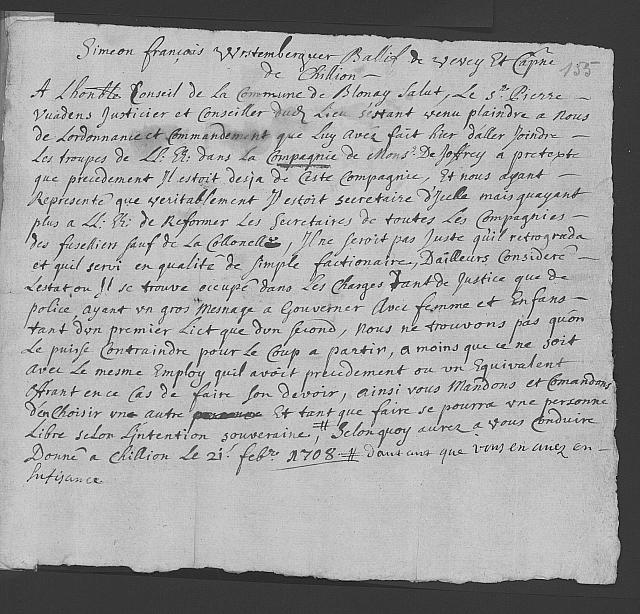 Simeon françois Wrstemberguer Ballif de Vevey Et Capne
de Chillion —
155
A Lhonble Conseil de La Commune de Blonay Salut, Le Sr. Pierre —
Vuadens Justicier et Conseiller dud Lieu sestant venu plaindre a Nous
de Lordonnance et Commandement que Luy avez fait hier daller Joindre —
Les troupes de LL: EE: dans La Compagnie de Monsr. De Joffrey a pretexte
que precedement Il estoit desja de Ceste Compagnie, Et nous ayant —
Represente que veritablement Il estoit secretaire d'Icelle mais quayant
plus a LL: EE: de Reformer Les Secretaires de toutes Les Compagnies —
des fuselliers sauf de La Collonelle, Il ne seroit pas Juste quil retrograda
et quil servi en qualité de simple factionaire, D'ailleurs Considere —
Lestat ou Il se trouve occupé dans Les Charges tant de Justice que de
police, ayant vn gros Mesnage a Gouverner Avec femme et Enfans —
tant d'vn premier Lict que d'vn second, Nous ne trouvons pas quon
Le puisse Contraindre pour Le Coup a partir, a moins que ce ne soit
avec Le mesme Employ quil avoit precedement ou vn Equivalent
Offrant en ce Cas de faire son devoir, ainsi vous Mandons et Comandons
den Choisir vne autre Et tant que faire se pourra vne personne
Libre selon L'intention souveraine, # Selon quoy aurez a vous Conduire
Donné a Chillion Le 21e. febvr. 1708. # dautant que vous en avez en —
Sufisance